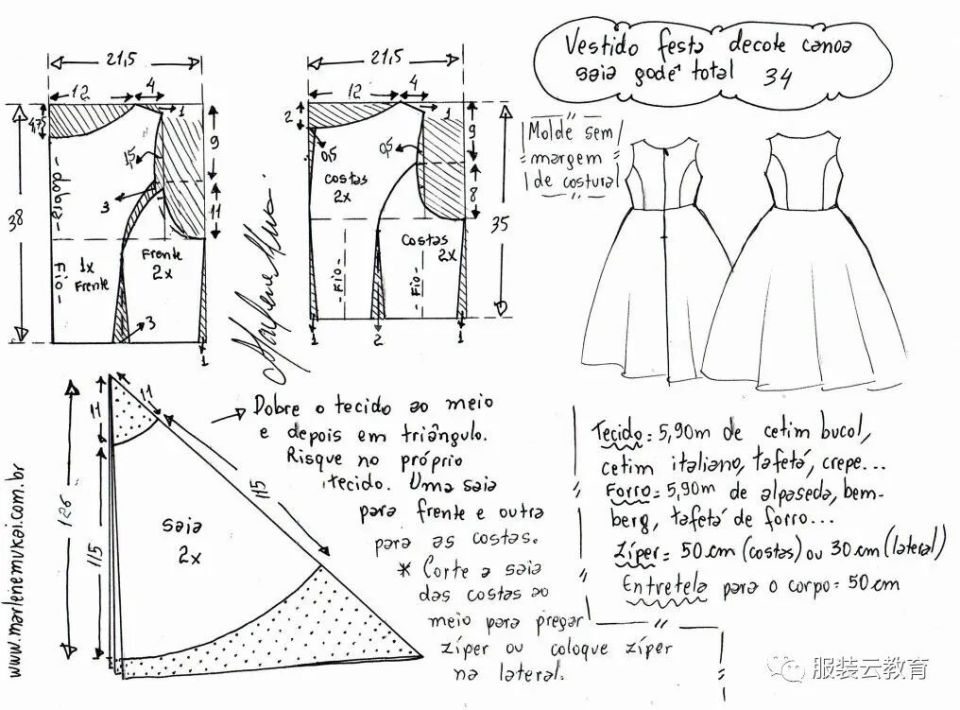 Vestido festa decote canoa
saia godê total 34
Molde sem
margem
de costura
21,5
12
4
1
4,5
9
1,5
dobra
3
11
38
Fio
1x
Frente
Frente
2x
3
1
21,5
12
4
1
2
0,5
0,5
9
costas
2x
8
35
Costas
2x
Fio
Fio
1
2
1
Marlene Mukai
www.marlenemukai.com.br
11
11
126
115
115
saia
2x
Dobre o tecido ao meio
e depois em triângulo.
Risque no próprio
tecido. Uma saia
para frente e outra
para as costas.
* Corte a saia
das costas ao
meio para pregar
zíper ou coloque zíper
na lateral.
Tecido = 5,90m de cetim bucol,
cetim italiano, tafetá, crepe...
Forro = 5,90m de alpaseda, bem-
berg, tafetá de forro...
Zíper = 50 cm (costas) ou 30 cm (lateral)
Entretela para o corpo = 50 cm
服装云教育